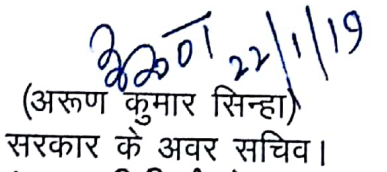 22/1/19
(अरूण कुमार सिन्हा)
सरकार के अवर सचिव।